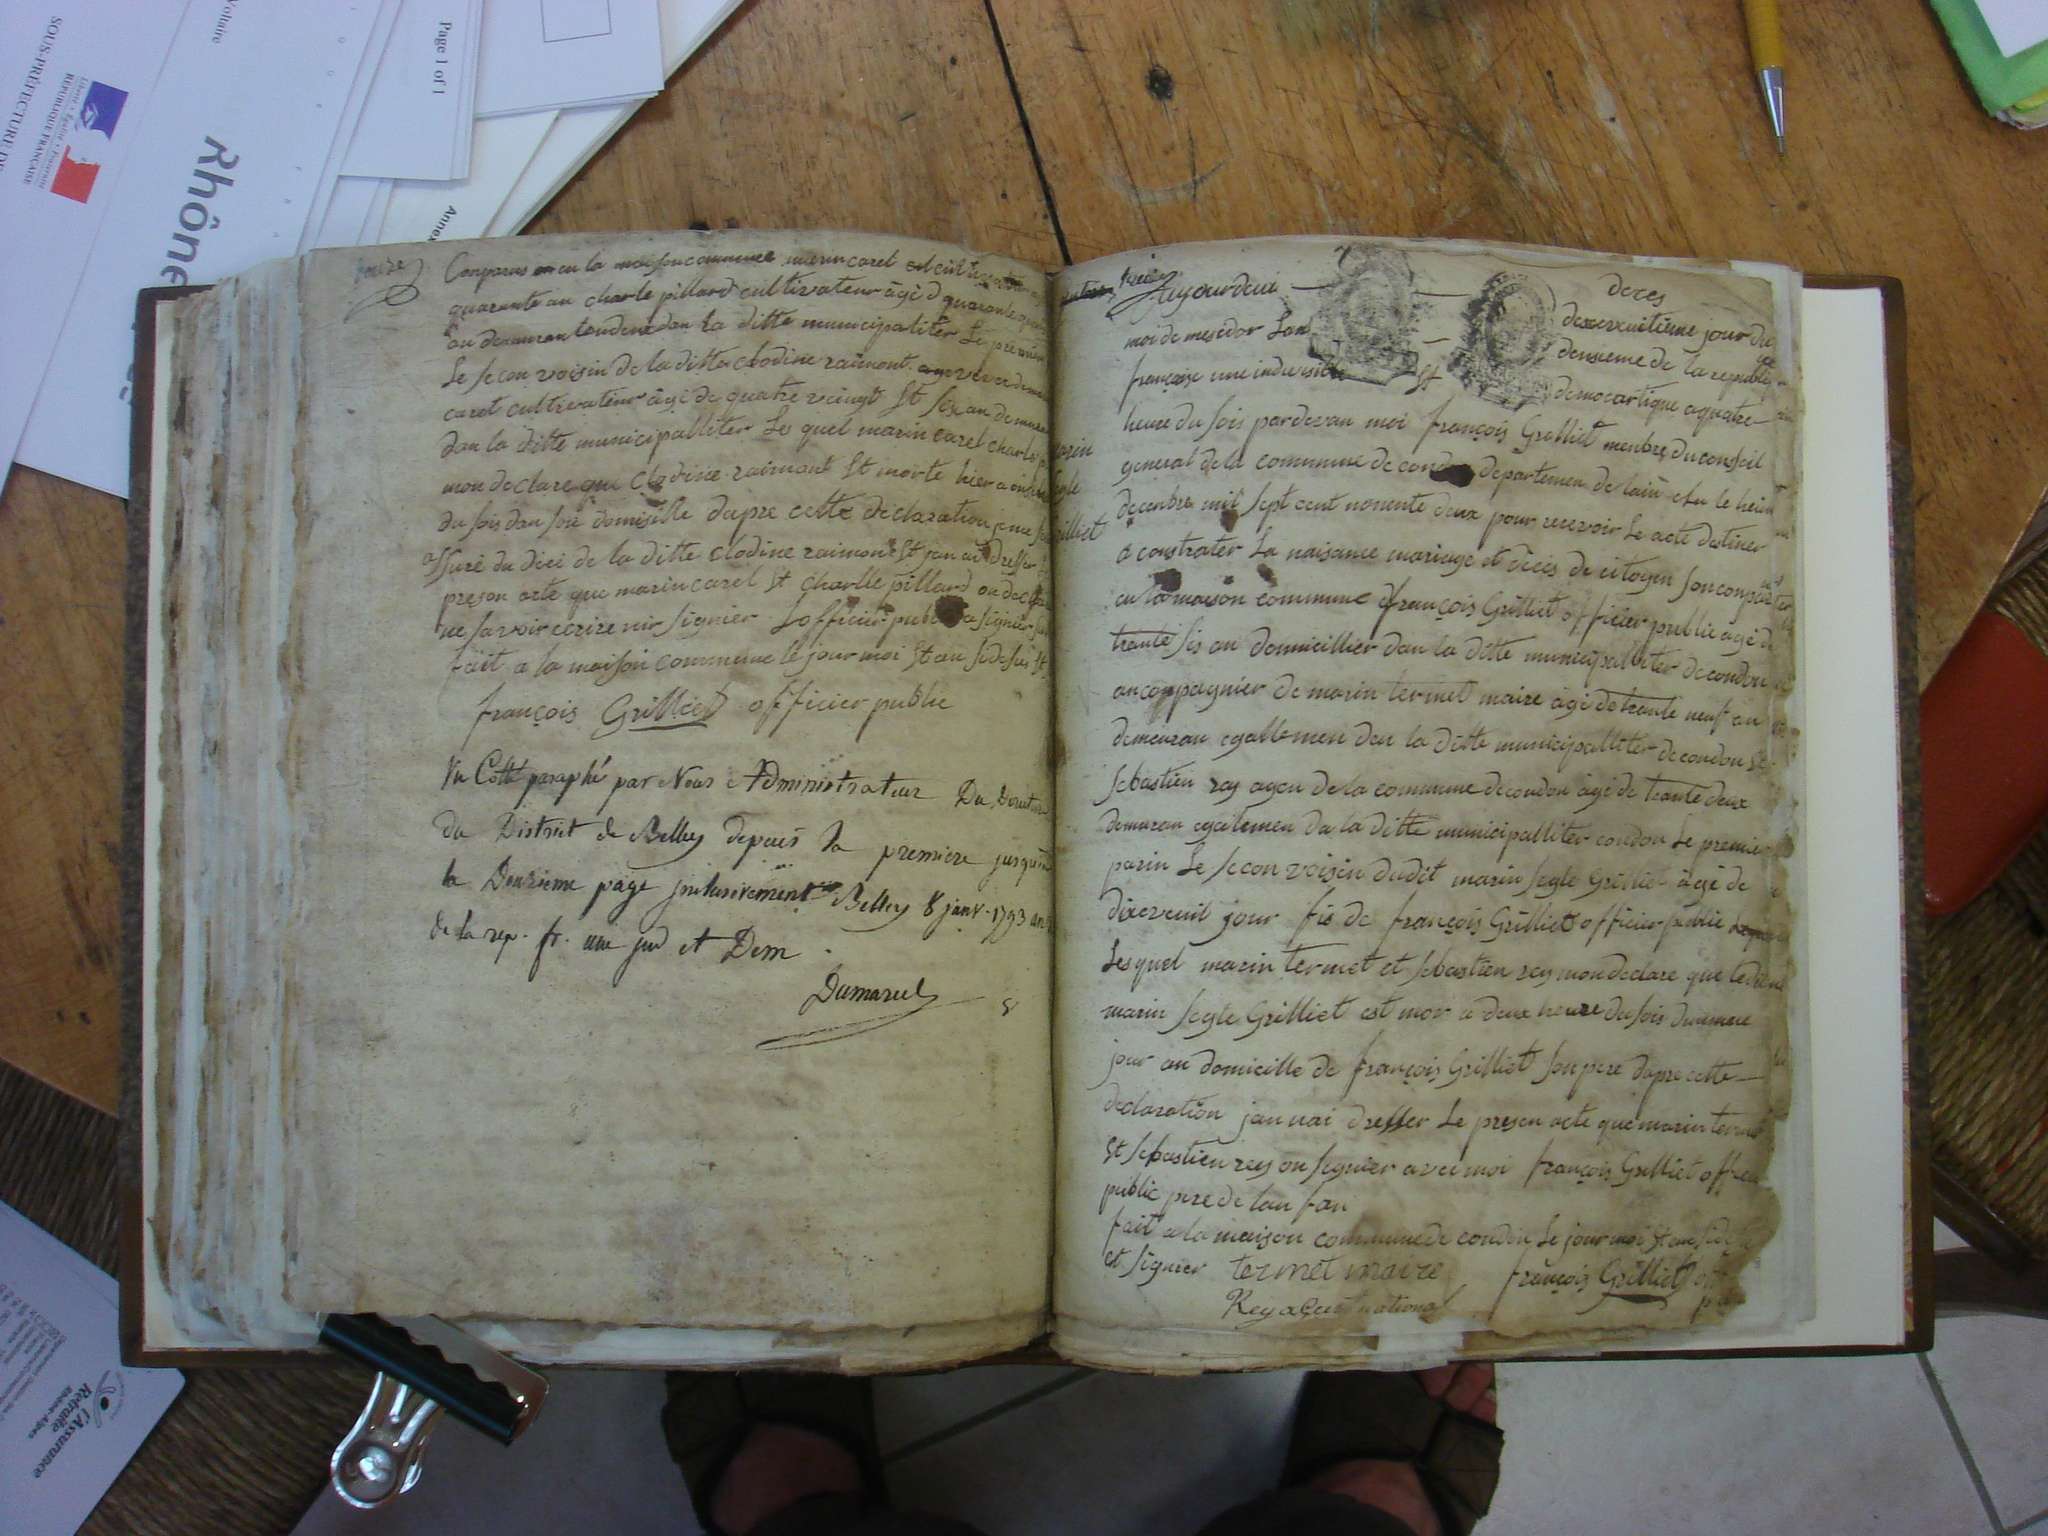 Voltaire
SOUS-PRÉFECTURE DE
Liberté • Égalité • Fraternité
RÉPUBLIQUE FRANÇAISE
Rhône
Page 1 of 1
Annex
Conparus en la maison commune marin carel cultivateur
quarante an charle pillard cultivateur âgé d quarante quatre
an demuran tou deux dan la ditte municipaliter Le premier
Le secon voisin de la ditte clodine raimont
carel cultivateur âgé de quatre vingt St six an demuran
dan la ditte municipalliter Le quel marin carel charle
mon declare que Clodine raimont St morte hier a
du sois dan son domisille dapre cette declaration je me
assuré du décé de la ditte clodine raimont St jan ai dresser
preson acte que marin carel St charlle pillard on declare
ne savoir ecrire nir signier Lofficier public a signier
fait a la maison commune le jour moi St an sidesus St
françois Grilliet officier public
Vu Cotté paraphé par Nous Administrateur Du Directoire
du District de Belley depuis la première jusqu'à
la Douzieme page inclusivement Belley 8 janv. 1793 an
de la rep. fr. une ind et Dem.
Dumarest
deces
Aujourdeui dexerveuitieme jour du
moi de mesidor Lan deusieme de la republique
françoise une indivisible St democartique a quatre
heure du sois pardevan moi françois Grilliet menbre du conseil
general de la commune de condon departemen de lain elu le
decenbre mil sept cent nonente deux pour recevoir Le acte destiner
a constrater La naisance mariage et décés de citoyen son conparus
en la maison commune françois Grilliet officier public agé de
trante sis an domicillier dan la ditte municipalliter de condon
anconpagnier de marin termet maire âgé de trante neuf an
demeuran egallemen dan la ditte municipalliter de condon St
sebastien rey agen de la commune de condon âgé de trante deux
demuran egallemen da la ditte municipalliter condon Le premier
parin Le secon voisin dudit marin segle Grilliet âgé de
dixerveuit jour fis de françois Grilliet officier public
Lesquel marin termet et sebastien rey mon declare que ledit
marin segle Grilliet est mor a deux heure du sois dumeme
jour au domicille de françois Grilliet son pere dapre cette
declaration jan nai dresser Le preson acte que marin termet
St sebastien rey on signier avec moi françois Grilliet officier
public pere de lan fan
fait a la maison commune de condon Le jour moi St an sidesus
et signier termet maire françois Grilliet
Rey agent national
l'Assurance
Retraite
Rhône-Alpes